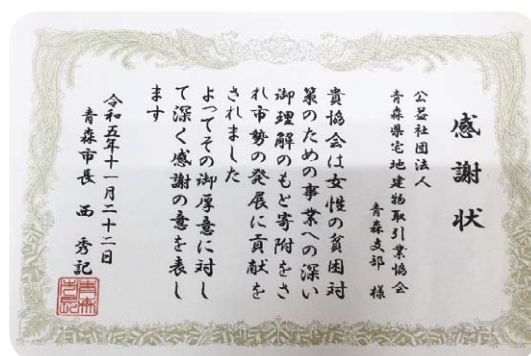 感謝状
公益社団法人
青森県宅地建物取引業協会
青森支部 様
貴協会は女性の貧困対
策のための事業への深い
御理解のもと寄附をさ
れ市勢の発展に貢献を
されました
よってその御厚意に対し
て深く感謝の意を表し
ます
令和五年十一月二十二日
青森市長 西 秀記
青森
市長